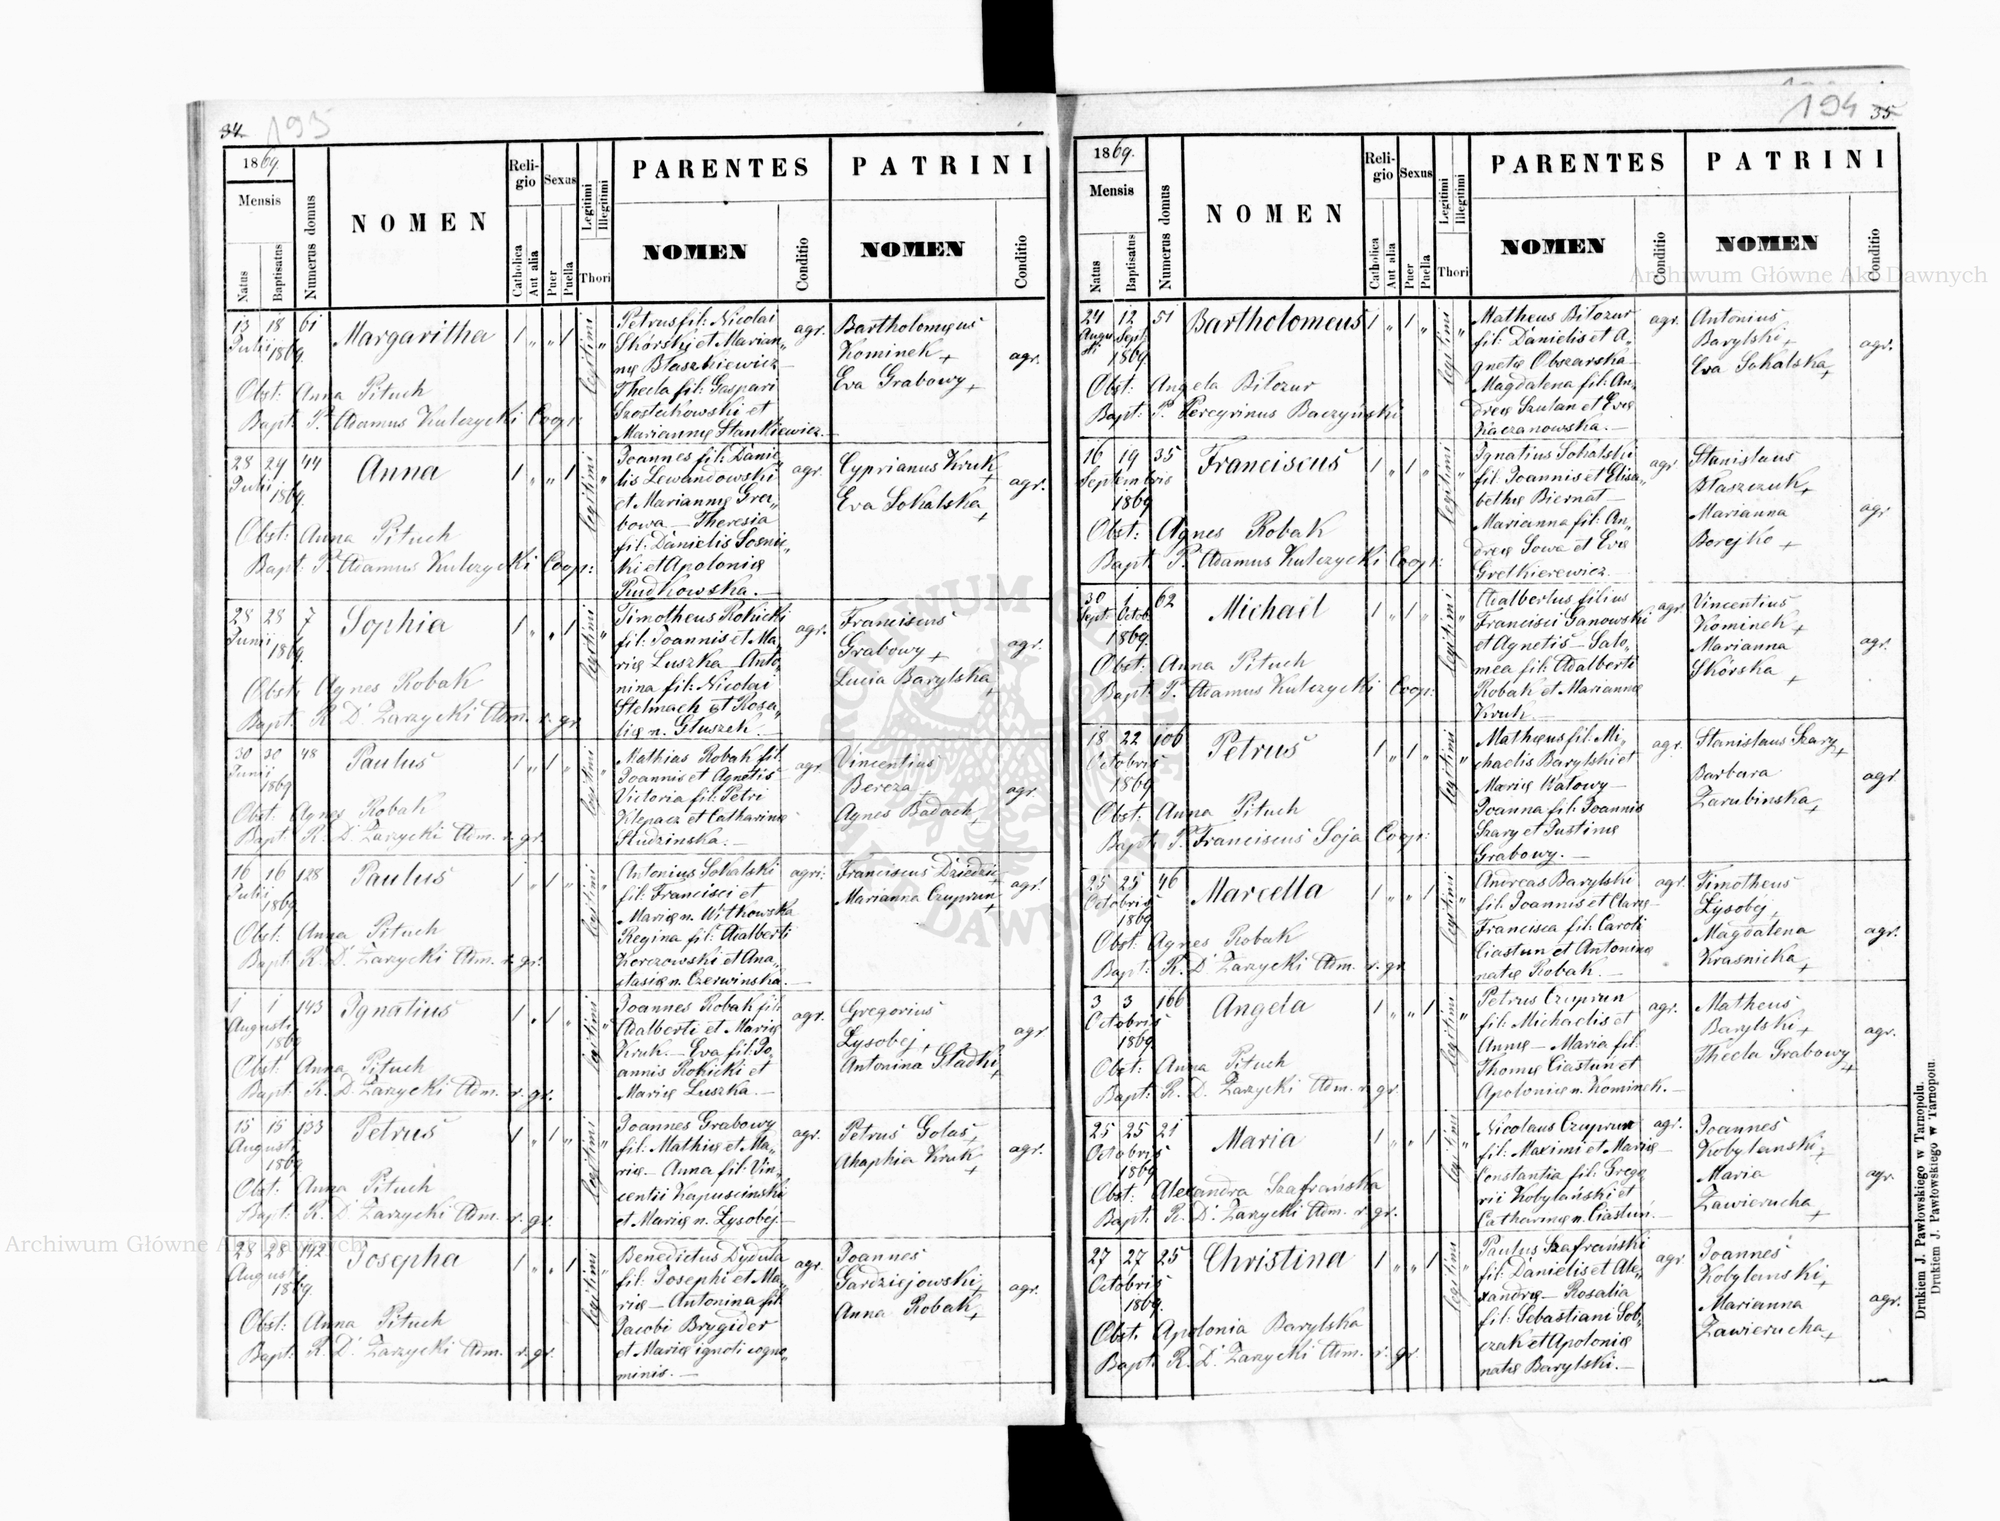 34.
193
1869.
Mensis
Natus
Baptisatus
Numerus domus
NOMEN
Religio
Catholica
Aut alia
Sexus
Puer
Puella
Legitimi
Illegitimi
Thori
PARENTES
NOMEN
Conditio
PATRINI
NOMEN
Conditio
13 18 61 Margaritha 1 „ „ 1 legitimi „
Julii 1869.
Obst: Anna Pituch
Bapt: P. Adamus Kulczycki Coop:
Petrus fil: Nicolai
Skórski et Marian„
nę Błaszkiewicz –
Thecla fil: Gaspari
Szostakowski et
Mariannę Stankiewicz. –
agr.
Bartholomęus
Kominek +
Eva Grabowy +
agr.
28 29 44 Anna 1 „ „ 1 legitimi „
Julii 1869.
Obst: Anna Pituch
Bapt: P. Adamus Kulczycki Coop:
Joannes fil: Danie„
lis Lewandowski
et Mariannę Gra„
bowa – Theresia
fil: Danielis Sosnic„
ki et Apolonię
Rudkowska. –
agr.
Cyprianus Kruk +
Eva Sokalska +
agr.
28 28 7 Sophia 1 „ „ 1 legitimi „
Junii 1869.
Obst: Agnes Robak
Bapt: R. D. Zarzycki Adm. r. gr.
Timotheus Rokicki
fil: Joannis et Ma„
rię Luszka – Anto„
nina fil: Nicolai
Stelmach et Rosa„
lię n. Głuszek. –
agr.
Franciscus
Grabowy +
Lucia Barylska +
agr.
30 30 48 Paulus 1 „ 1 „ legitimi „
Junii 1869
Obst: Agnes Robak
Bapt: R. D. Zarzycki Adm. r. gr.
Mathias Robak fil.
Joannis et Agnetis
Victoria fil: Petri
et Catharinę
Studzinska. –
agr.
Vincentius
Bereza +
Agnes Badach +
agr.
16 16 128 Paulus 1 „ 1 „ legitimi „
Julii 1869
Obst: Anna Pituch
Bapt: R. D. Zarzycki Adm. r. gr.
Antonius Sokalski
fil: Francisci et
Marię n. Witkowska
Regina fil: Adalberti
Korczowski et Ana„
stasię n. Czerwinska. –
agri:
Franciscus Dziedzic +
Marianna Czuprun +
agr.
1 1 143 Ignatius 1 „ 1 „ legitimi „
Augusti 1869
Obst: Anna Pituch
Bapt: R. D. Zarzycki Adm. r. gr.
Joannes Robak fil:
Adalberti et Marię
Kruk. – Eva fil: Jo„
annis Rokicki et
Marię Luszka. –
agr.
Gregorius
Łysobej +
Antonina Gładki +
agr
15 15 133 Petrus 1 „ 1 „ legitimi „
Augusti 1869
Obst: Anna Pituch
Bapt: R. D. Zarzycki Adm. r. gr.
Joannes Grabowy
fil: Mathię et Ma„
rię – Anna fil: Vin„
centii Kapuscinski
et Marię n. Łysobej –
agr.
Petrus Golas +
Ahaphia Kruk +
agr.
28 28 142 Josepha 1 „ „ 1 legitimi „
Augusti 1869.
Obst: Anna Pituch
Bapt: R. D. Zarzycki Adm. r. gr.
Benedictus Dydula
fil: Josephi et Ma„
rię – Antonina fil:
Jacobi Brygider
et Marię ignoti cogno„
minis. –
agr.
Joannes
Gardziejowski +
Anna Robak +
agr.
194
35.
1869.
Mensis
Natus
Baptisatus
Numerus domus
NOMEN
Religio
Catholica
Aut alia
Sexus
Puer
Puella
Legitimi
Illegitimi
Thori
PARENTES
NOMEN
Conditio
PATRINI
NOMEN
Conditio
24 12 51 Bartholomeus 1 „ 1 „ legitimi „
Augusti Sept. 1869
Obst: Angela Biłozur
Bapt: P. Peregrinus Baczyński
Matheus Biłozur
fil: Danielis et A„
gnetę Obszarska –
Magdalena fil: An„
dreę Szulan et Evę
Kaczanowska. –
agr.
Antonius
Barylski +
Eva Sokalska +
agr.
16 19 35 Franciscus 1 „ 1 „ legitimi „
Septembris 1869
Obst: Agnes Robak
Bapt: P. Adamus Kulczycki Coop:
Ignatius Sokalski
fil: Joannis et Elisa„
bethę Biernat –
Marianna fil: An„
dreę Sowa et Evę
Gretkierewicz.
agr
Stanislaus
Błaszczuk +
Marianna
Borejko +
agr
30 1 62 Michaël 1 „ 1 „ legitimi „
Sept. Octob. 1869.
Obst: Anna Pituch
Bapt: P. Adamus Kulczycki Coop:
Adalbertus filius
Francisci Janowski
et Agnetis – Salo„
mea fil: Adalberti
Robak et Mariannę
Kruk. –
agr.
Vincentius
Kominek +
Marianna
Skórska +
agr.
18 22 106 Petrus 1 „ 1 „ legitimi „
Octobris 1869
Obst: Anna Pituch
Bapt: P. Franciscus Soja Coop:
Mathęus fil: Mi„
chaelis Barylski et
Marię Watowy –
Joanna fil: Joannis
Szary et Justinę
Grabowy. –
agr.
Stanislaus Szary +
Barbara
Zarubinska +
agr
25 25 46 Marcella 1 „ „ 1 legitimi „
Octobris 1869
Obst: Agnes Robak
Bapt: R. D. Zarzycki Adm. r. gr.
Andreas Barylski
fil: Joannis et Clarę –
Francisca fil: Caroli
Ciastun et Antoninę
natę Robak. –
agr.
Timotheus
Łysobej +
Magdalena
Krasnicka +
agr.
3 3 166 Angela 1 „ „ 1 legitimi „
Octobris 1869.
Obst: Anna Pituch
Bapt: R. D. Zarzycki Adm. r. gr.
Petrus Czuprun
fil: Michaelis et
Annę – Maria fil:
Thomę Ciastun et
Apolonię n. Kominek. –
agr.
Matheus
Barylski +
Thecla Grabowy +
agr.
25 25 21 Maria 1 „ „ 1 legitimi „
Octobris 1869
Obst: Alexandra Szafrańska
Bapt: R. D. Zarzycki Adm. r. gr.
Nicolaus Czuprun
fil: Maximi et Marię –
Constantia fil: Grego„
rii Kobylański et
Catharinę n. Ciastun.
agr.
Joannes
Kobylanski +
Maria
Zawierucha +
agr
27 27 25 Christina 1 „ „ 1 legitimi „
Octobris 1869.
Obst: Apolonia Barylska
Bapt: R. D. Zarzycki Adm. r. gr.
Paulus Szafrański
fil: Danielis et Ale„
xandrę – Rosalia
fil: Sebastiani Sob„
czak et Apolonię
natę Barylski. –
agr.
Joannes
Kobylanski +
Marianna
Zawierucha +
agr.
Drukiem J. Pawłowskiego w Tarnopolu.
Drukiem J. Pawłowskiego w Tarnopolu.
Archiwum Główne Akt Dawnych
Archiwum Główne Akt Dawnych
ARCHIWUM GŁÓWNE AKT DAWNYCH